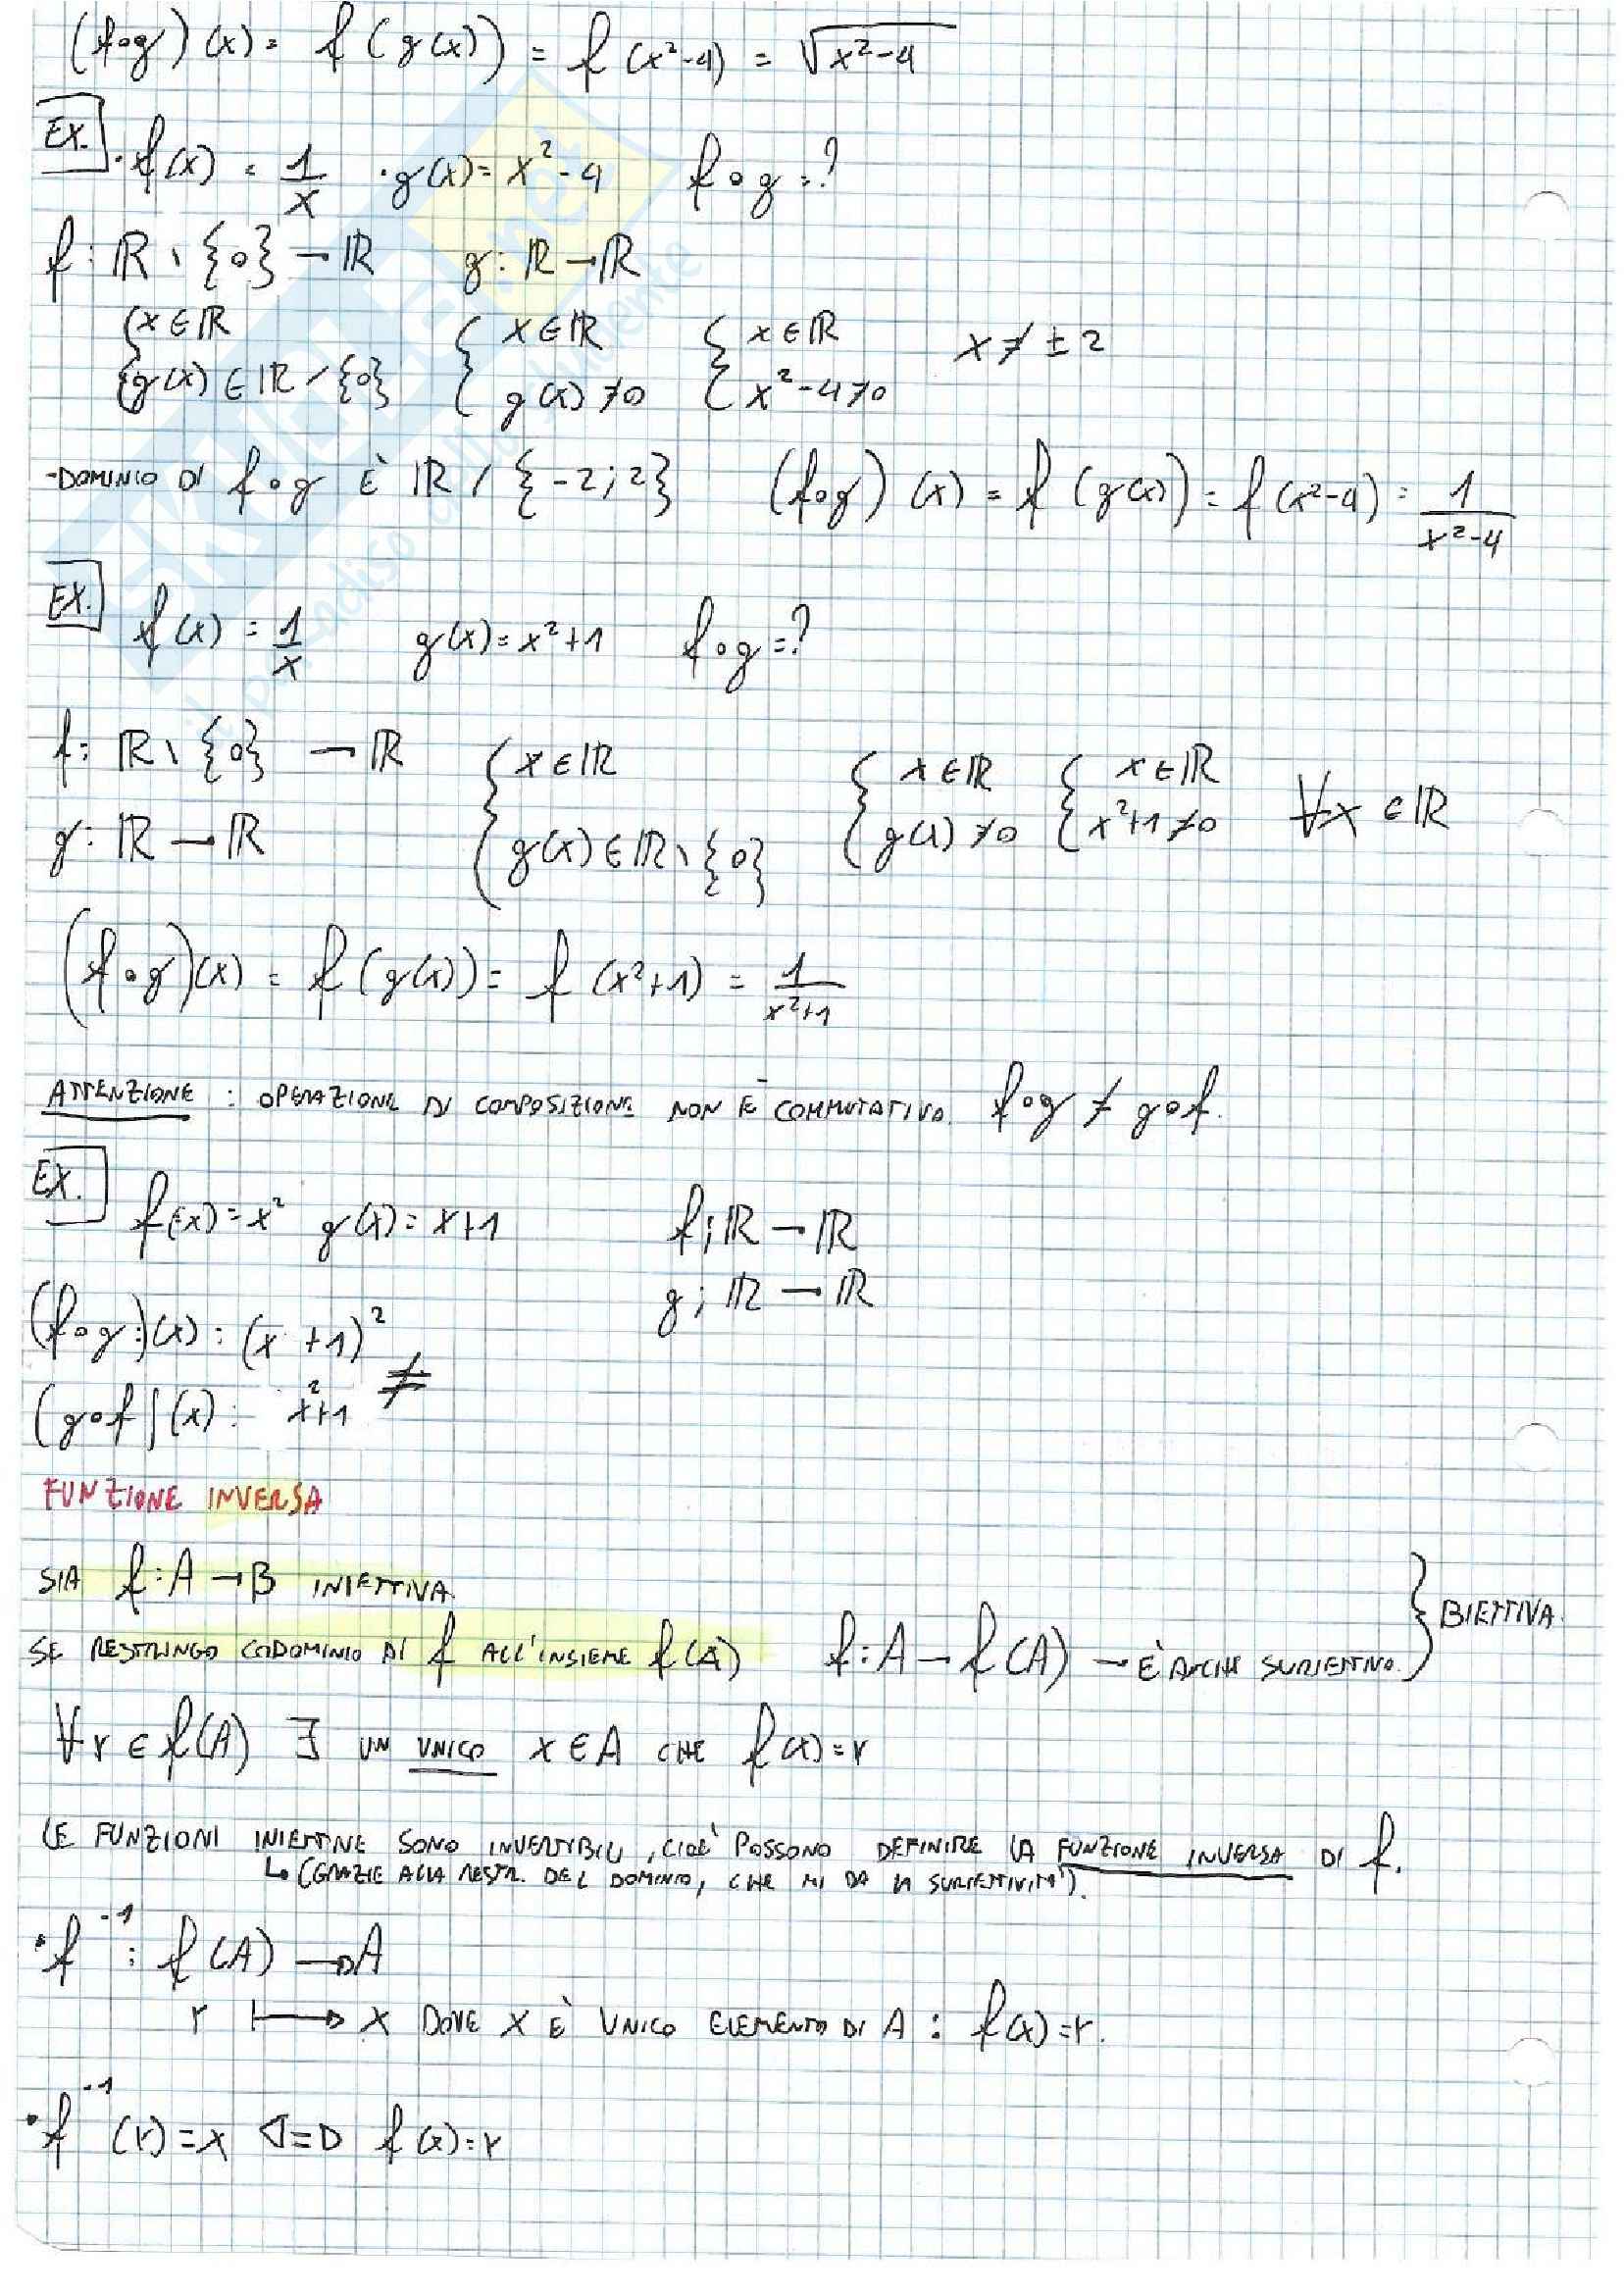 (f∘g)(x) = f(g(x)) = f(x²-4) = √x²-4
EX. · f(x) = 1/x · g(x) = x²-4 f∘g = ?
f: ℝ \ {0} → ℝ g: ℝ → ℝ
{x ∈ ℝ {x ∈ ℝ {x ∈ ℝ x ≠ ±2
{g(x) ∈ ℝ / {0} {g(x) ≠ 0 {x²-4 ≠ 0
-DOMINIO DI f∘g È ℝ / {-2;2} (f∘g)(x) = f(g(x)) = f(x²-4) = 1/x²-4
EX. f(x) = 1/x g(x) = x²+1 f∘g = ?
f: ℝ \ {0} → ℝ {x ∈ ℝ {x ∈ ℝ {x ∈ ℝ ∀x ∈ ℝ
g: ℝ → ℝ {g(x) ∈ ℝ \ {0} {g(x) ≠ 0 {x²+1 ≠ 0
(f∘g)(x) = f(g(x)) = f(x²+1) = 1/x²+1
ATTENZIONE : OPERAZIONE DI COMPOSIZIONE NON È COMMUTATIVA. f∘g ≠ g∘f.
EX. f(x) = x² g(x) = x+1 f; ℝ → ℝ
g; ℝ → ℝ
(f∘g)(x): (x +1)²
≠
(g∘f)(x): x²+1
FUNZIONE INVERSA
SIA f: A → B INIETTIVA.
SE RESTRINGO CODOMINIO DI f ALL'INSIEME f(A) f: A → f(A) → È ANCHE SURIETTIVA. } BIETTIVA.
∀ y ∈ f(A) ∃ UN UNICO x ∈ A CHE f(x) = y
LE FUNZIONI INIETTIVE SONO INVERTIBILI, CIOÈ POSSONO DEFINIRE LA FUNZIONE INVERSA DI f.
↳ (GRAZIE ALLA RESTR. DEL DOMINIO, CHE MI DA LA SURIETTIVITÀ).
· f⁻¹ : f(A) → A
y ↦ x DOVE X È UNICO ELEMENTO DI A : f(x) = y.
· f⁻¹ (y) = x ⇔ f(x) = y
SKUOLA.net
il paradiso dello studente